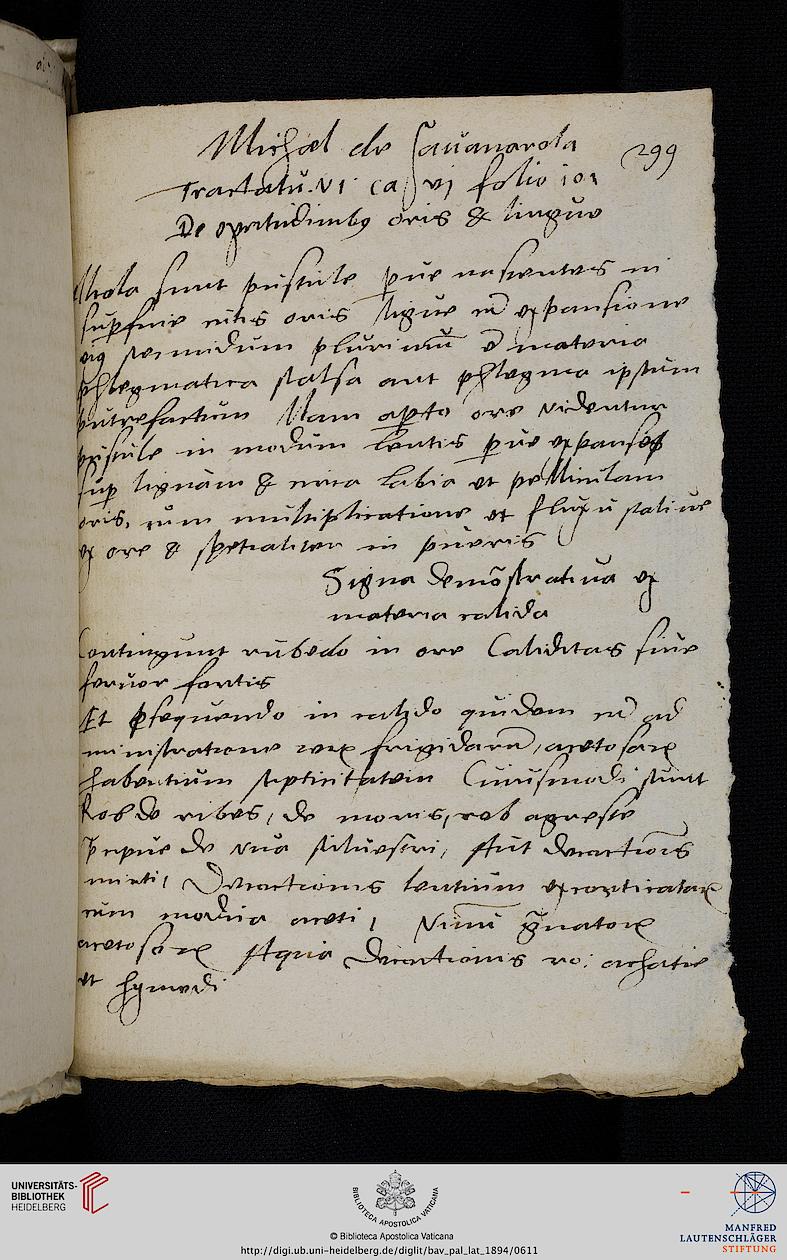 Michæl de Savanarola
299
Tractatu. VI ca. vj folio 101
De egritudinibꝯ oris & lingue
Alcola sunt pustule parue nascentes in
superficie cutis oris lingue cum expansione
plurimum e materia
phlegmatica salsa aut phlegma ipsum
putrefactum Nam aperto ore videntur
pustule in modum lentis parue expanse
sup linguam & circa labia et pelliculam
oris, cum multiplicatione et fluxu saliue
ex ore & spetialiter in pueris
Signa demõstratiua ex
materia calida
Contingunt rubedo in ore Caliditas siue
feruor fortis
Et prosequendo in calido quidem cum ad
ministratione rerum frigidarum, acetosarum
habentium stipticitatem Cuiusmodi sunt
Rob de ribes, de moris, rob agreste
precipue de vua siluestri, Aut decoctionis
mirti, Decoctionis lentium excorticatarum
cum modica aceti, Vinum granatorum
acetosorum Aqua decoctionis ro:
et hymedi